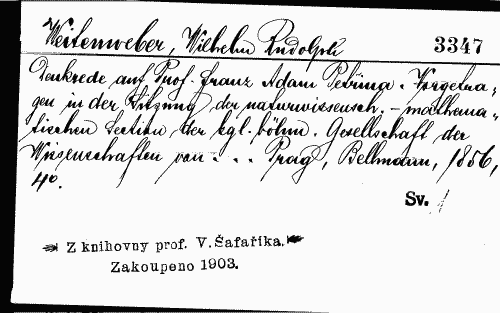 Weitenweber, Wilhelm Rudolph
3347
Denkrede auf Prof. Franz Adam Petřina. Vorgetra-
gen in der Sitzung der naturwissensch.-mathema-
tischen Section der kgl. böhm. Gesellschaft der
Wissenschaften von... Prag, Bellmann, 1856,
4o.
Sv. 1
Z knihovny prof. V. Šafaříka.
Zakoupeno 1903.